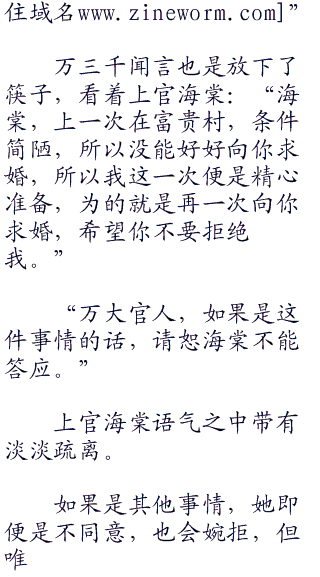 住域名www.zineworm.com]”
万三千闻言也是放下了
筷子，看着上官海棠：“海
棠，上一次在富贵村，条件
简陋，所以没能好好向你求
婚，所以我这一次便是精心
准备，为的就是再一次向你
求婚，希望你不要拒绝
我。”
“万大官人，如果是这
件事情的话，请恕海棠不能
答应。”
上官海棠语气之中带有
淡淡疏离。
如果是其他事情，她即
便是不同意，也会婉拒，但
唯